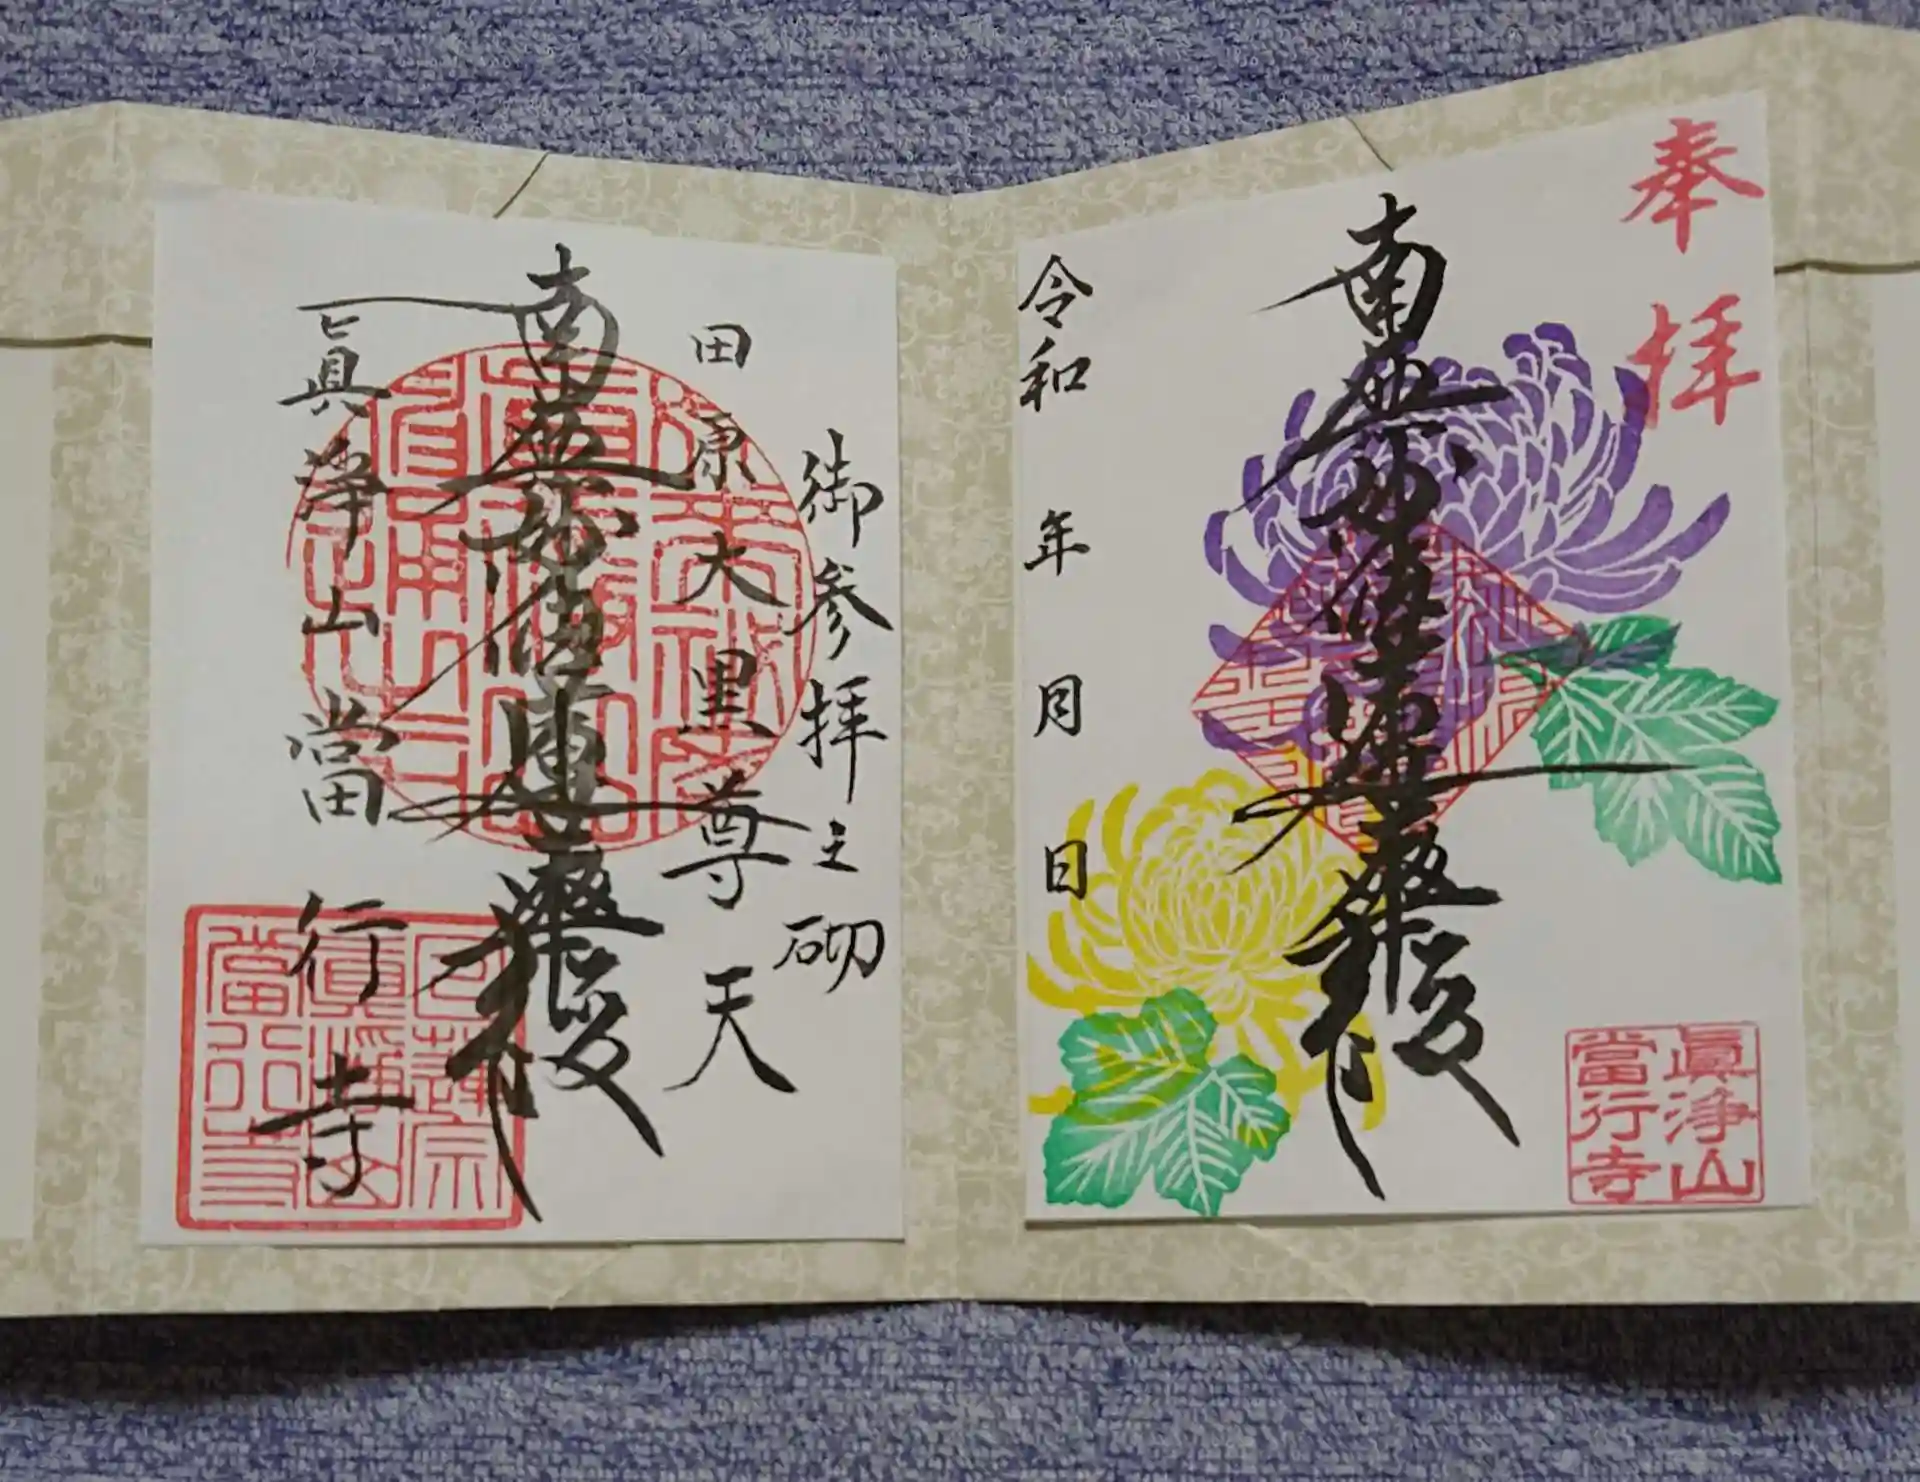 奉拝
南無妙法蓮華経
眞浄山
當行寺
令和 年 月 日
御参拝之砌
田原大黒尊天
南無妙法蓮華経
眞浄山 當行寺
日蓮宗
眞浄山
當行寺